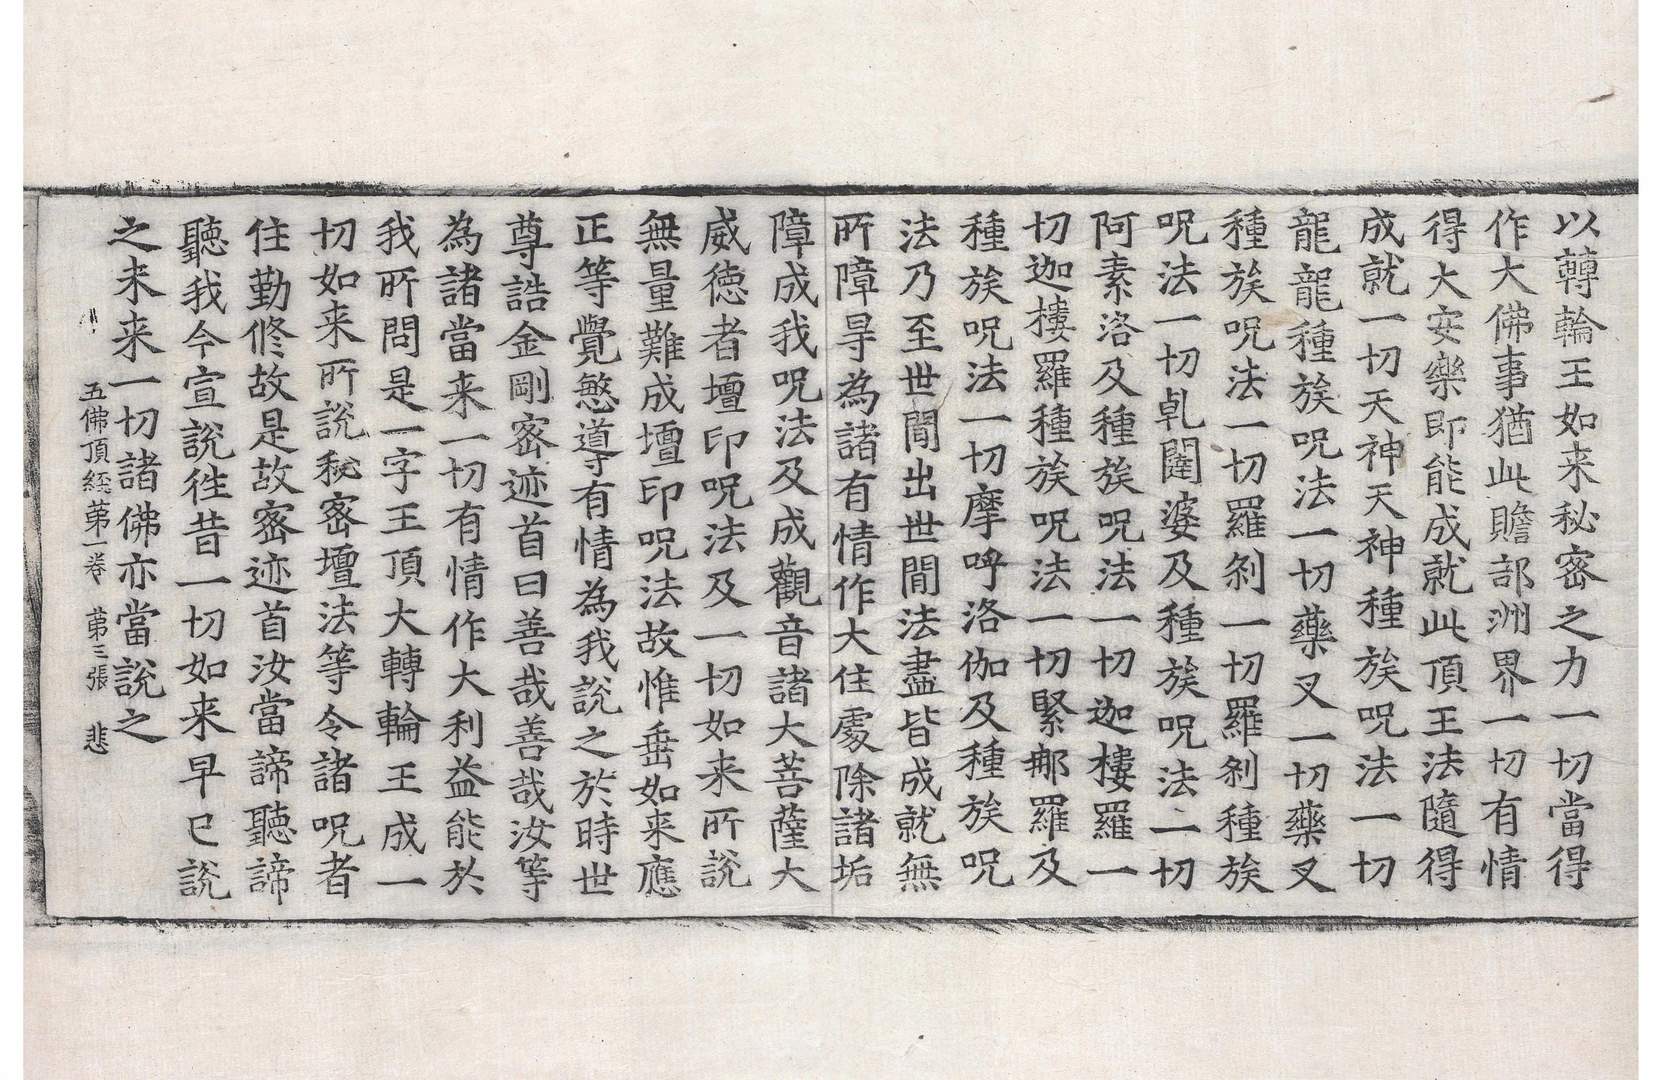 以轉輪王如来秘密之力一切當得
作大佛事猶此贍部洲界一切有情
得大安樂即能成就此頂王法隨得
成就一切天神天神種族呪法一切
龍龍種族呪法一切藥叉一切藥叉
種族呪法一切羅剎一切羅剎種族
呪法一切乹闥婆及種族呪法一切
阿素洛及種族呪法一切迦樓羅一
切迦樓羅種族呪法一切緊那羅及
種族呪法一切摩呼洛伽及種族呪
法乃至世間出世間法盡皆成就無
所障㝵為諸有情作大住處除諸垢
障成我呪法及成觀音諸大菩薩大
威德者壇印呪法及一切如来所說
無量難成壇印呪法故惟垂如来應
正等覺慜導有情為我說之於時世
尊誥金剛密迹首曰善哉善哉汝等
為諸當来一切有情作大利益能於
我所問是一字王頂大轉輪王成一
切如来所說秘密壇法等令諸呪者
住勤修故是故密迹首汝當諦聽諦
聽我今宣說徃昔一切如来早已說
之未来一切諸佛亦當說之
五佛頂經第一卷 第三張 悲